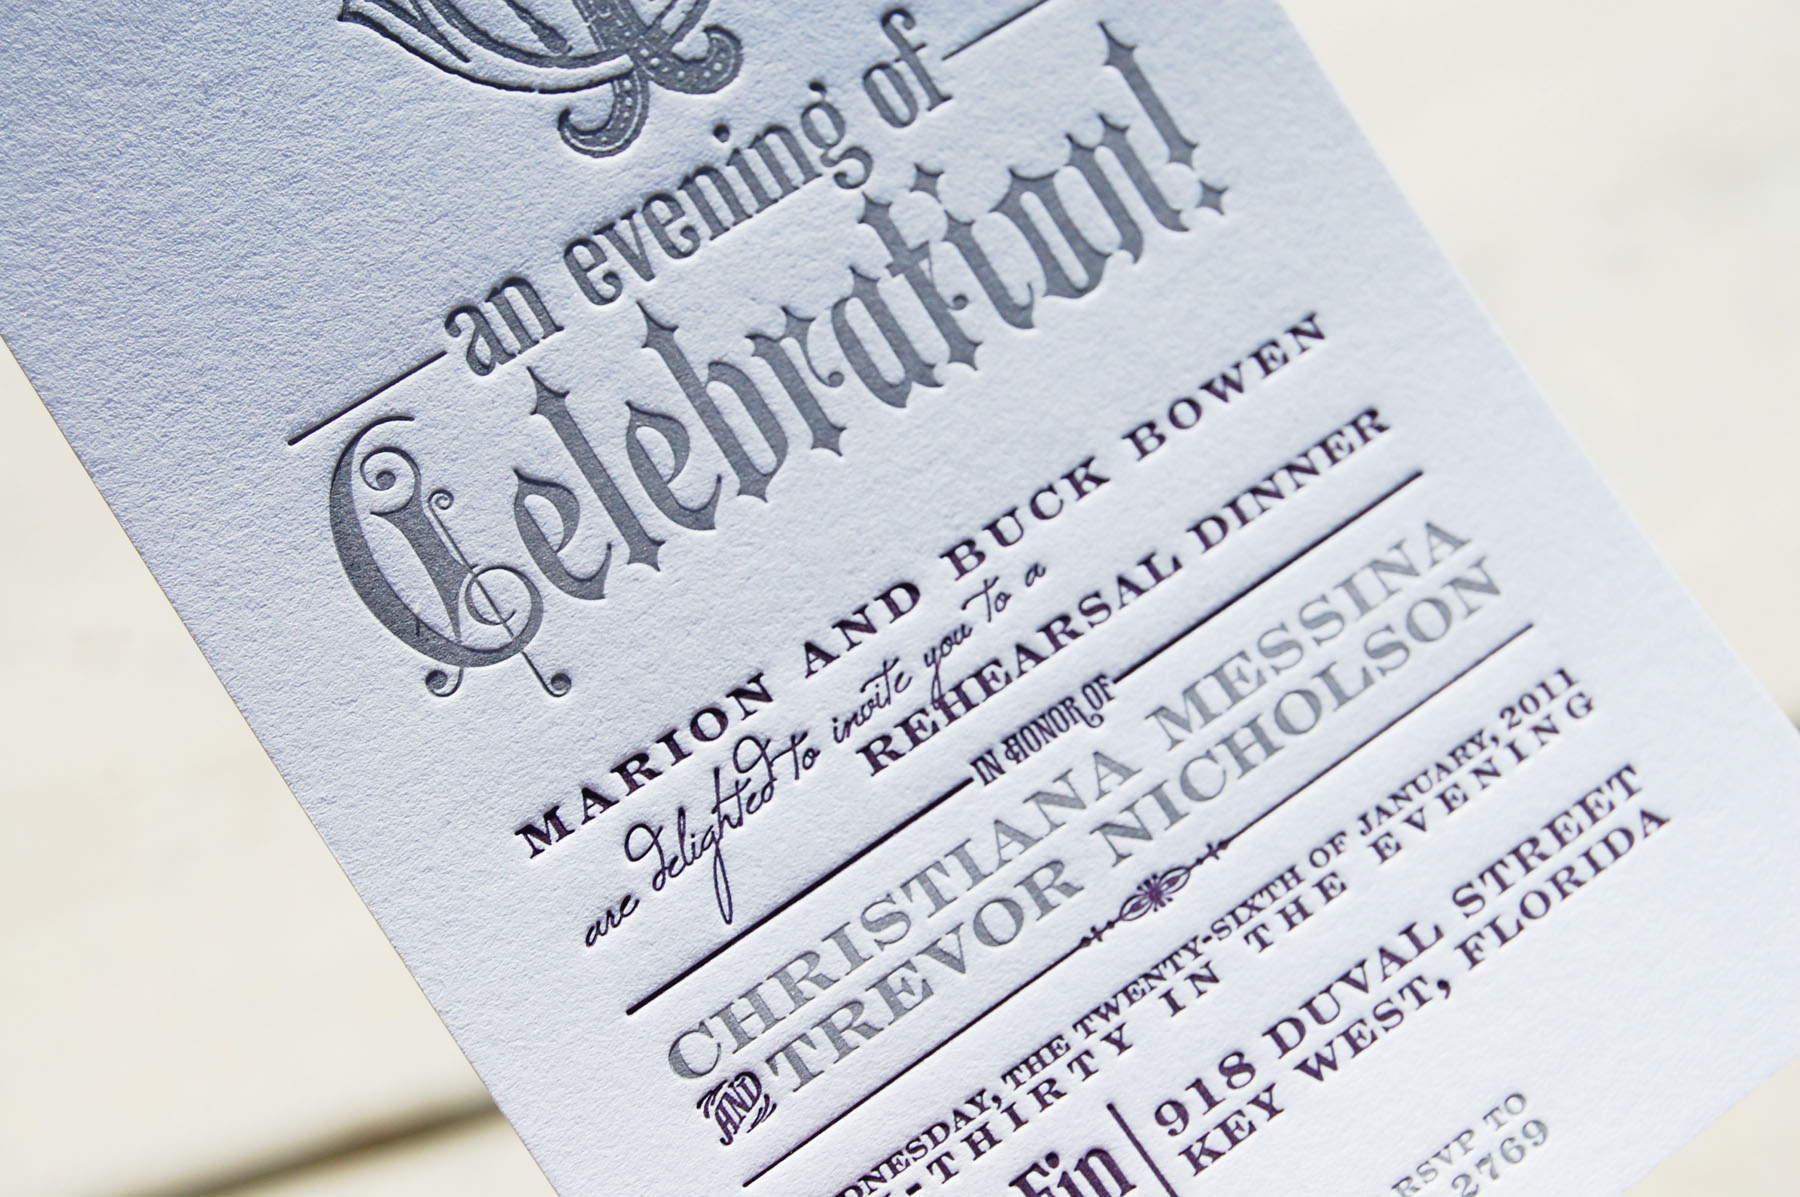 an evening of
Celebration!
MARION AND BUCK BOWEN
are delighted to invite you to a
REHEARSAL DINNER
IN HONOR OF
CHRISTIANA MESSINA
AND TREVOR NICHOLSON
DNESDAY, THE TWENTY-SIXTH OF JANUARY, 2011
-THIRTY IN THE EVENING
Fin
918 DUVAL STREET
KEY WEST, FLORIDA
RSVP TO
2769